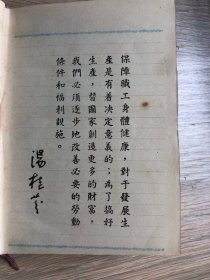 保障職工身體健康，對于發展生
產是有着决定意義的；為了搞好
生產，替國家創造更多的財富，
我們必須逐步地改善必要的勞動
條件和福利設施。
湯桂芬